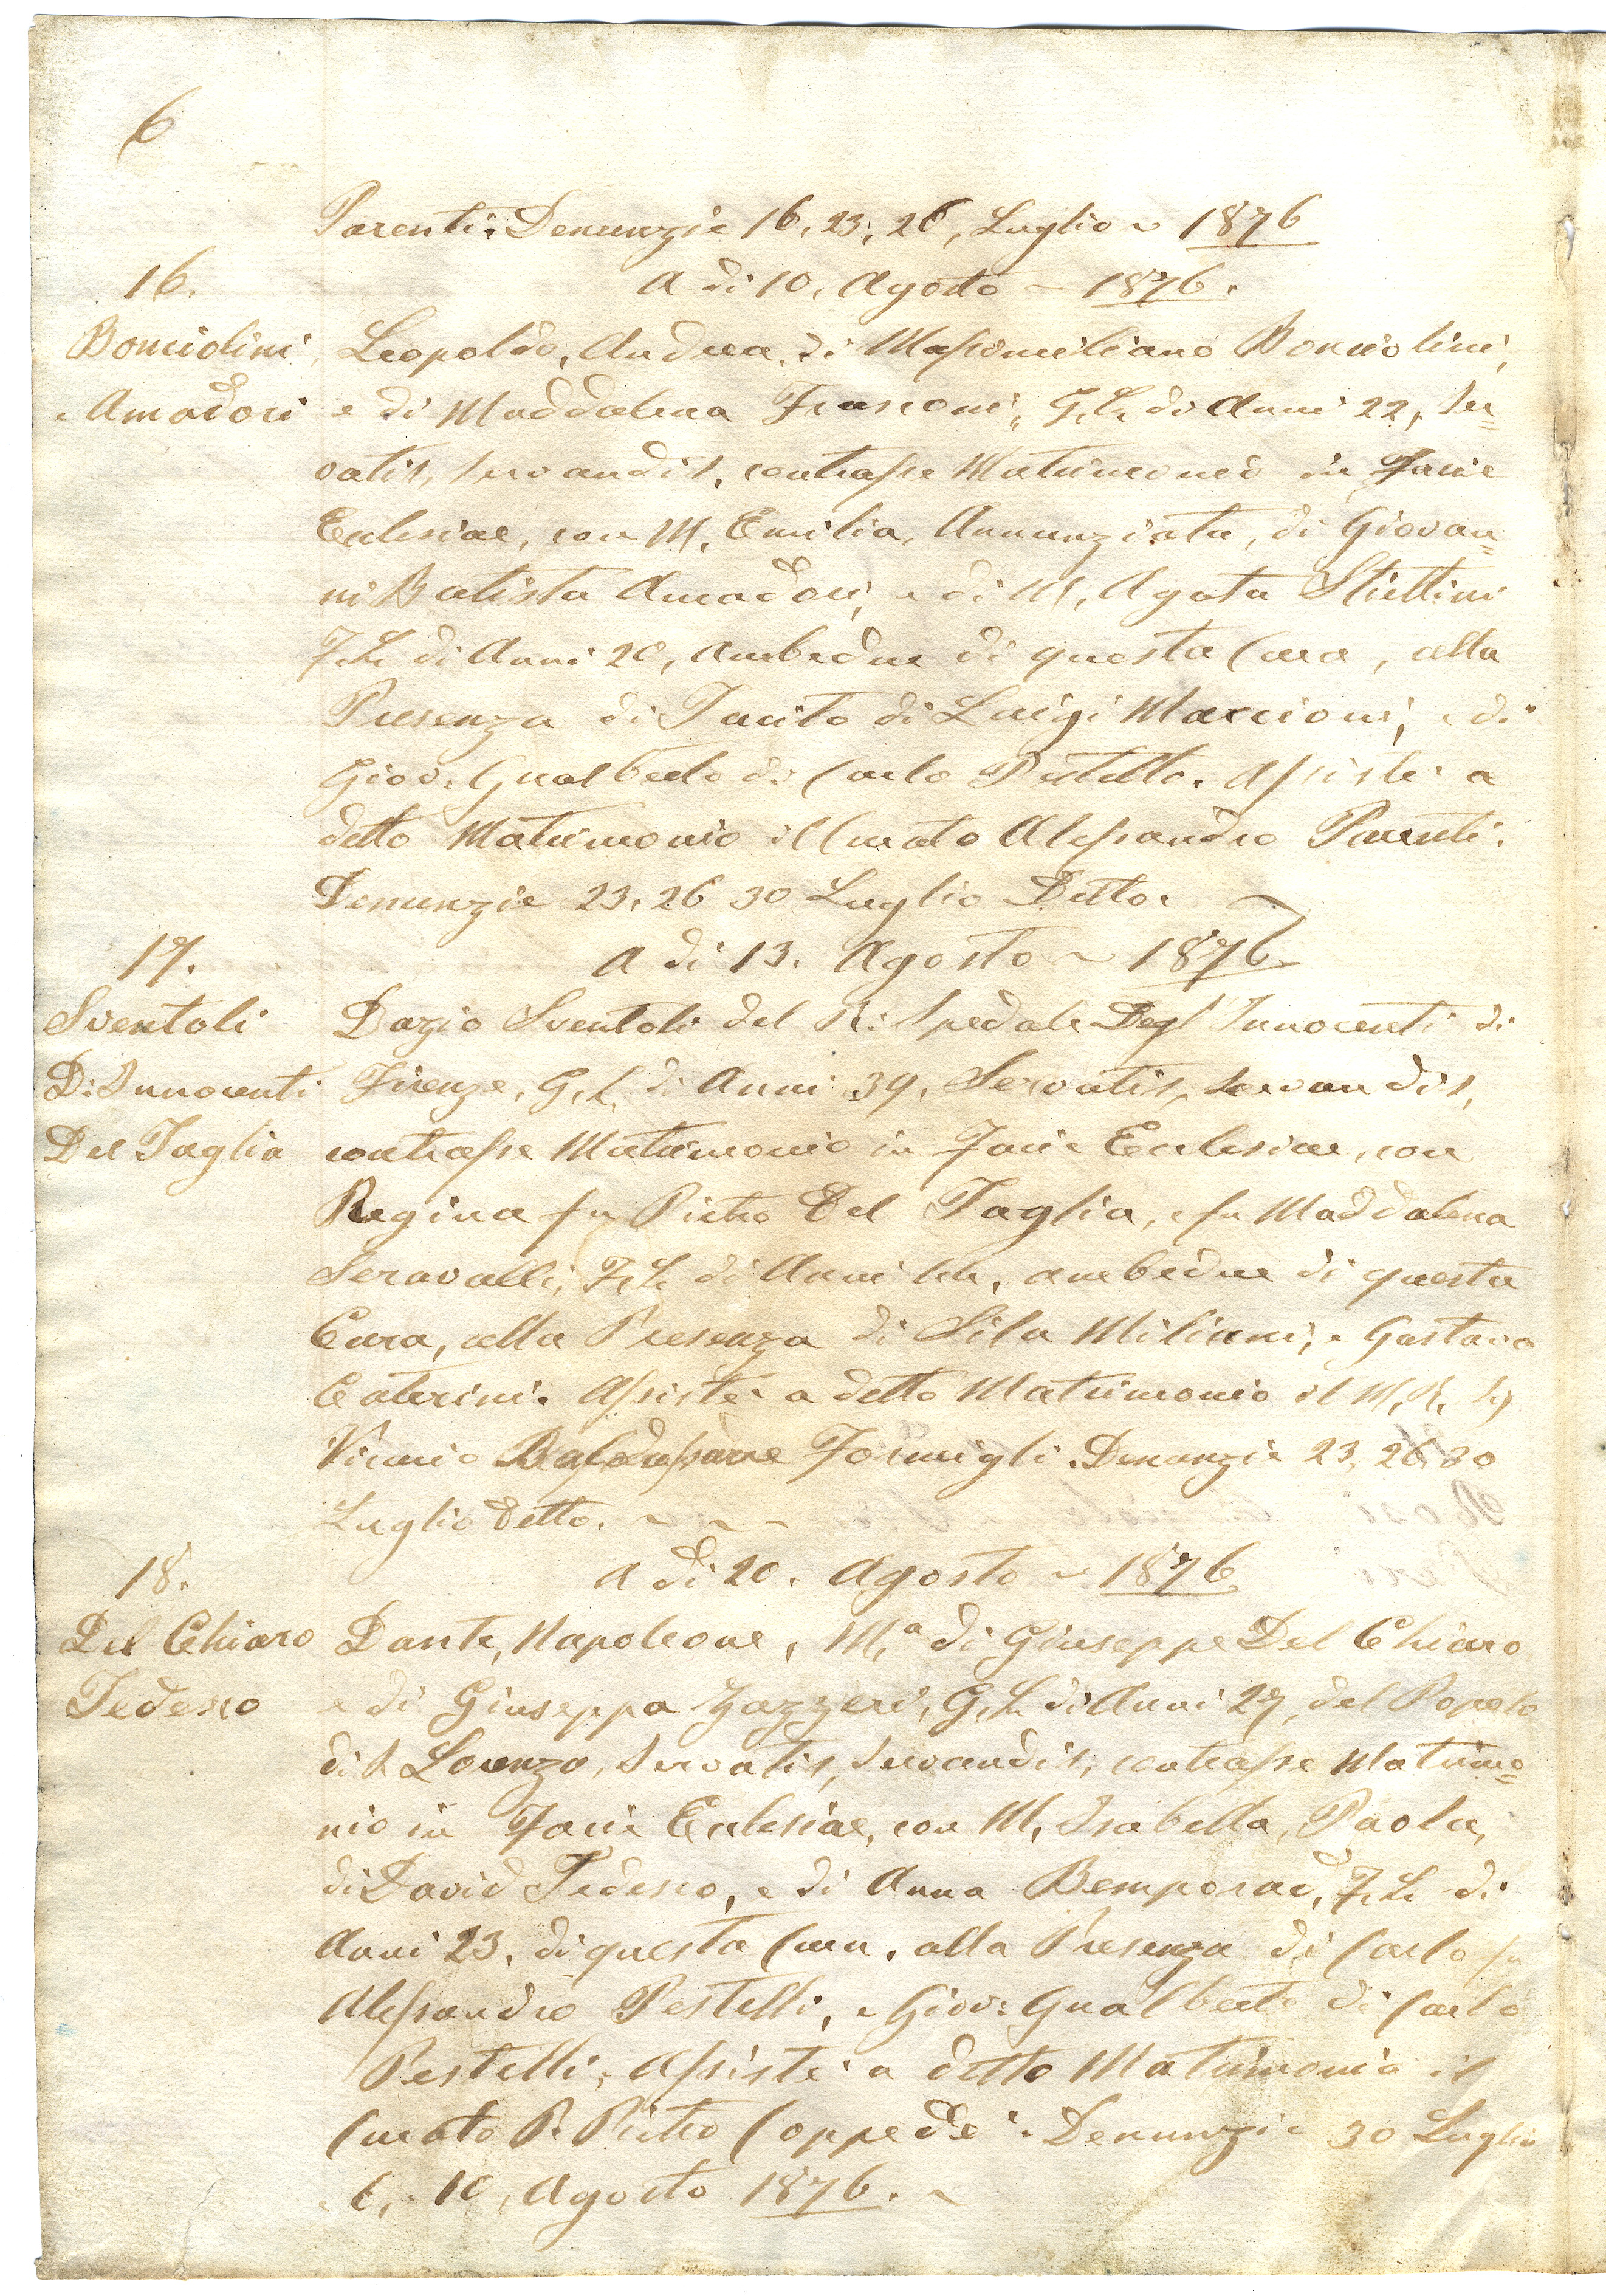 6
Parenti. Denunzie 16, 23, 26, Luglio ~ 1876
16.
A di 10, Agosto ~ 1876.
Bonciolini
e Amadori
Leopoldo, Andrea, di Massimiliano Bonciolini,
e di Maddalena Frasconi, G, L, di Anni 22, Ser=
vatis, servandis, contrasse Matrimonio in Facie
Eclesiae, con M, Emilia, Annunziata, di Giovan=
ni Batista Amadori, e di M, Agata Stiettini
F, L, di Anni 20, ambedue di questa Cura, alla
Presenza di Tacito di Luigi Marcioni, e di
Giov: Gualberto di Carlo Pestelli. Assistè a
detto Matrimonio il Curato Alessandro Parenti.
Denunzie 23, 26 30 Luglio Detto. ~
17.
A di 13. Agosto ~ 1876.
Sventoli
D: Innocenti
Del Taglia
Dazio Sventoli del R: Spedale Degl'Innocenti di
Firenze, G, L, di Anni 39, Servatis, servandis,
contrasse Matrimonio in Facie Eclesiae, con
Regina fu Pietro Del Taglia, e fu Maddalena
Seravalli, F, L, di Anni ambedue di questa
Cura, alla Presenza di Sila Miliani, e Gustavo
Caterini. Assistè a detto Matrimonio il M, R,
Vicario Baldassarre Formigli. Denunzie 23, 26, 30
Luglio detto. ~ ~ ~
18.
A di 20. Agosto ~ 1876
Del Chiaro
Tedesco
Dante, Napoleone, M,ª di Giuseppe Del Chiaro
e di Giuseppa Zazzeri, G, L, di Anni 27, del Popolo
di S Lorenzo, Servatis, servandis, contrasse Matrimo=
nio in Facie Eclesiae, con M, Isabella, Paola,
di David Tedesco, e di Anna Bemporad, F, L, di
Anni 23, di questa Cura, alla Presenza di Carlo fu
Alessandro Pestelli, e Giov: Gualberto di Carlo
Pestelli, Assistè a detto Matrimonio il
Curato P. Pietro Coppedè. Denunzie 30 Luglio
6, 10, Agosto 1876. ~